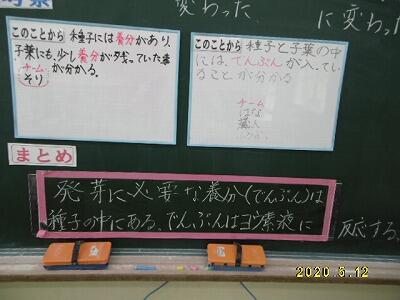 変わった
に変わった
このことから 種子には養分があり、
子葉にも、少し養分が残っていた事
が分かる。
チーム
そり
このことから 種子と子葉の中
には、でんぷんが入ってい
ることが分かる
チーム
はな
まとめ
発芽に必要な養分(でんぷん)は
種子の中にある。でんぷんはヨウ素液に
反応する。
2020 5.12